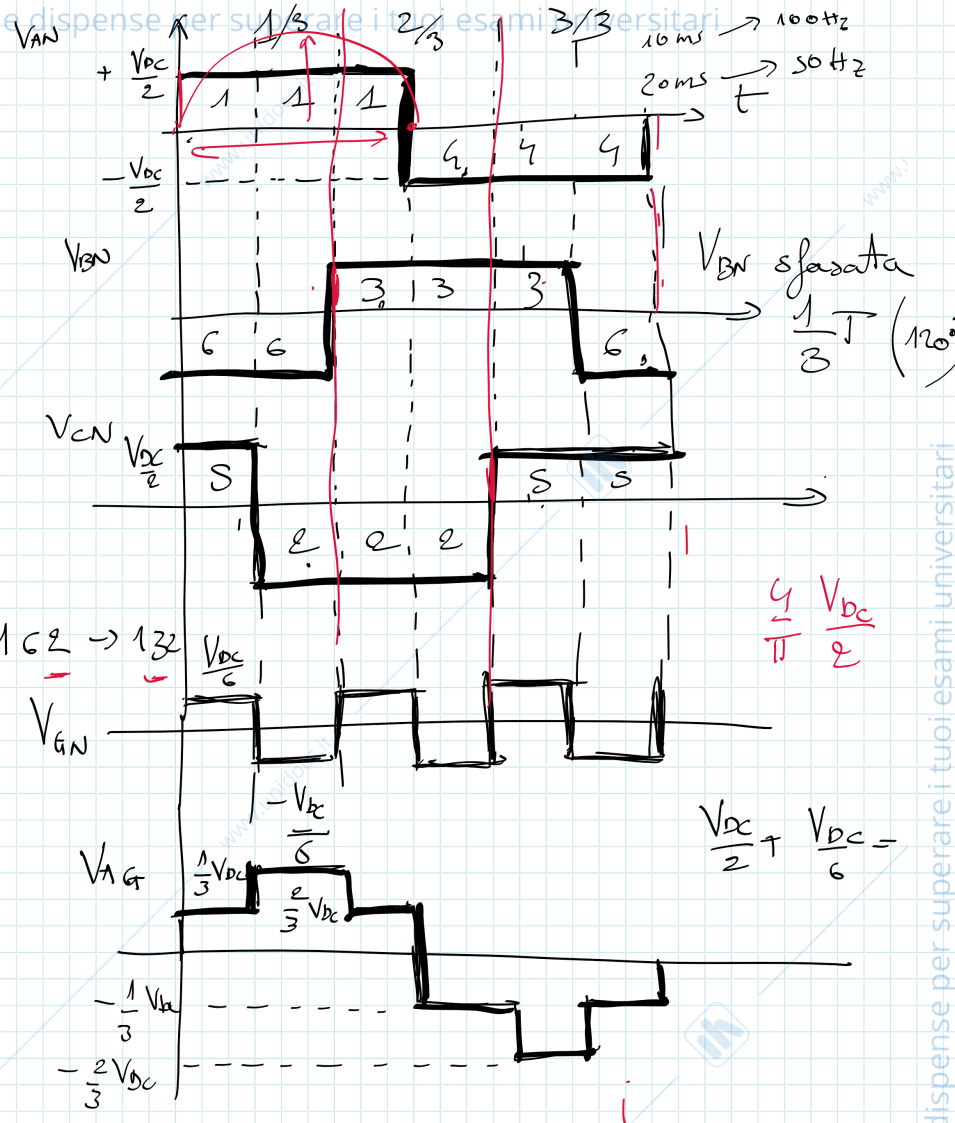 dispense per superare i tuoi esami universitari
VAN 1/3 2/3 3/3 10ms → 100Hz
+ VDC/2 20ms → 50Hz
1 1 1 t
4 4 4
- VDC/2
www.
VBN VBN sfasata
3 3 3 1/3 T (120°)
6 6 6
VCN VDC/2
5 5 5
2 2 2
4/π VDC/2
162 → 132 VDC/6
VGN
- VDC/6
VDC/2 + VDC/6 =
VAG 1/3 VDC
2/3 VDC
- 1/3 VDC
- 2/3 VDC
dispense per superare i tuoi esami universitari